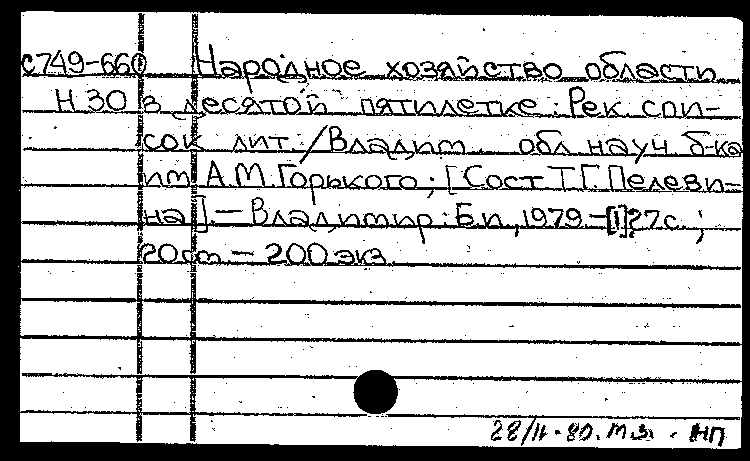 с749-660 Народное хозяйство области
Н 30 в десятой пятилетке: Рек. спи-
сок лит. / Владим. обл. науч. б-ка
им. А.М. Горького; [Сост. Т.Г. Пелеви-
на]. — Владимир: Б.и., 1979. — [1], 27 с.;
20 см — 200 экз.
28/II-80. М.З. - НП